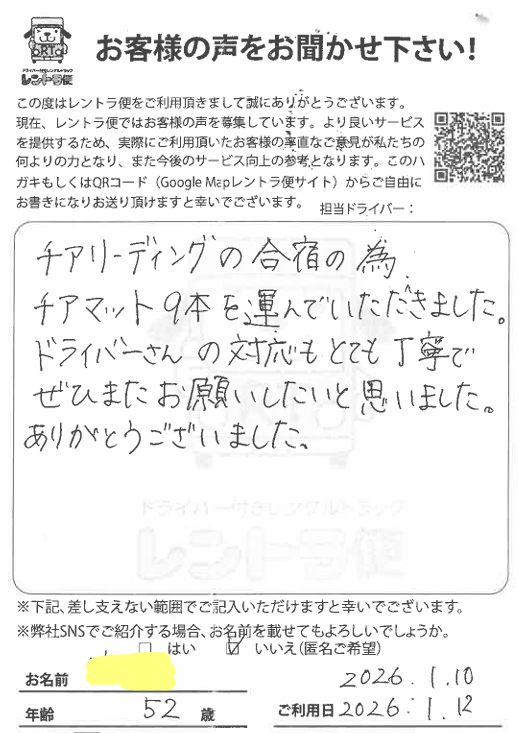 RT
ドライバー付きレンタルトラック
レントラ便
お客様の声をお聞かせ下さい!
この度はレントラ便をご利用頂きまして誠にありがとうございます。
現在、レントラ便ではお客様の声を募集しています。より良いサービス
を提供するため、実際にご利用頂いたお客様の率直なご意見が私たちの
何よりの力となり、また今後のサービス向上の参考となります。このハ
ガキもしくはQRコード（Google Mapレントラ便サイト）からご自由に
お書きになりお送り頂けますと幸いでございます。
担当ドライバー：
チアリーディングの合宿の為、
チアマット9本を運んでいただきました。
ドライバーさんの対応もとても丁寧で
ぜひまたお願いしたいと思いました。
ありがとうございました。
ドライバー付きレンタルトラック
レントラ便
※下記、差し支えない範囲でご記入いただけますと幸いでございます。
※弊社SNSでご紹介する場合、お名前を載せてもよろしいでしょうか。
□ はい ☑ いいえ(匿名ご希望)
お名前
2026.1.10
年齢 52 歳
ご利用日 2026.1.12